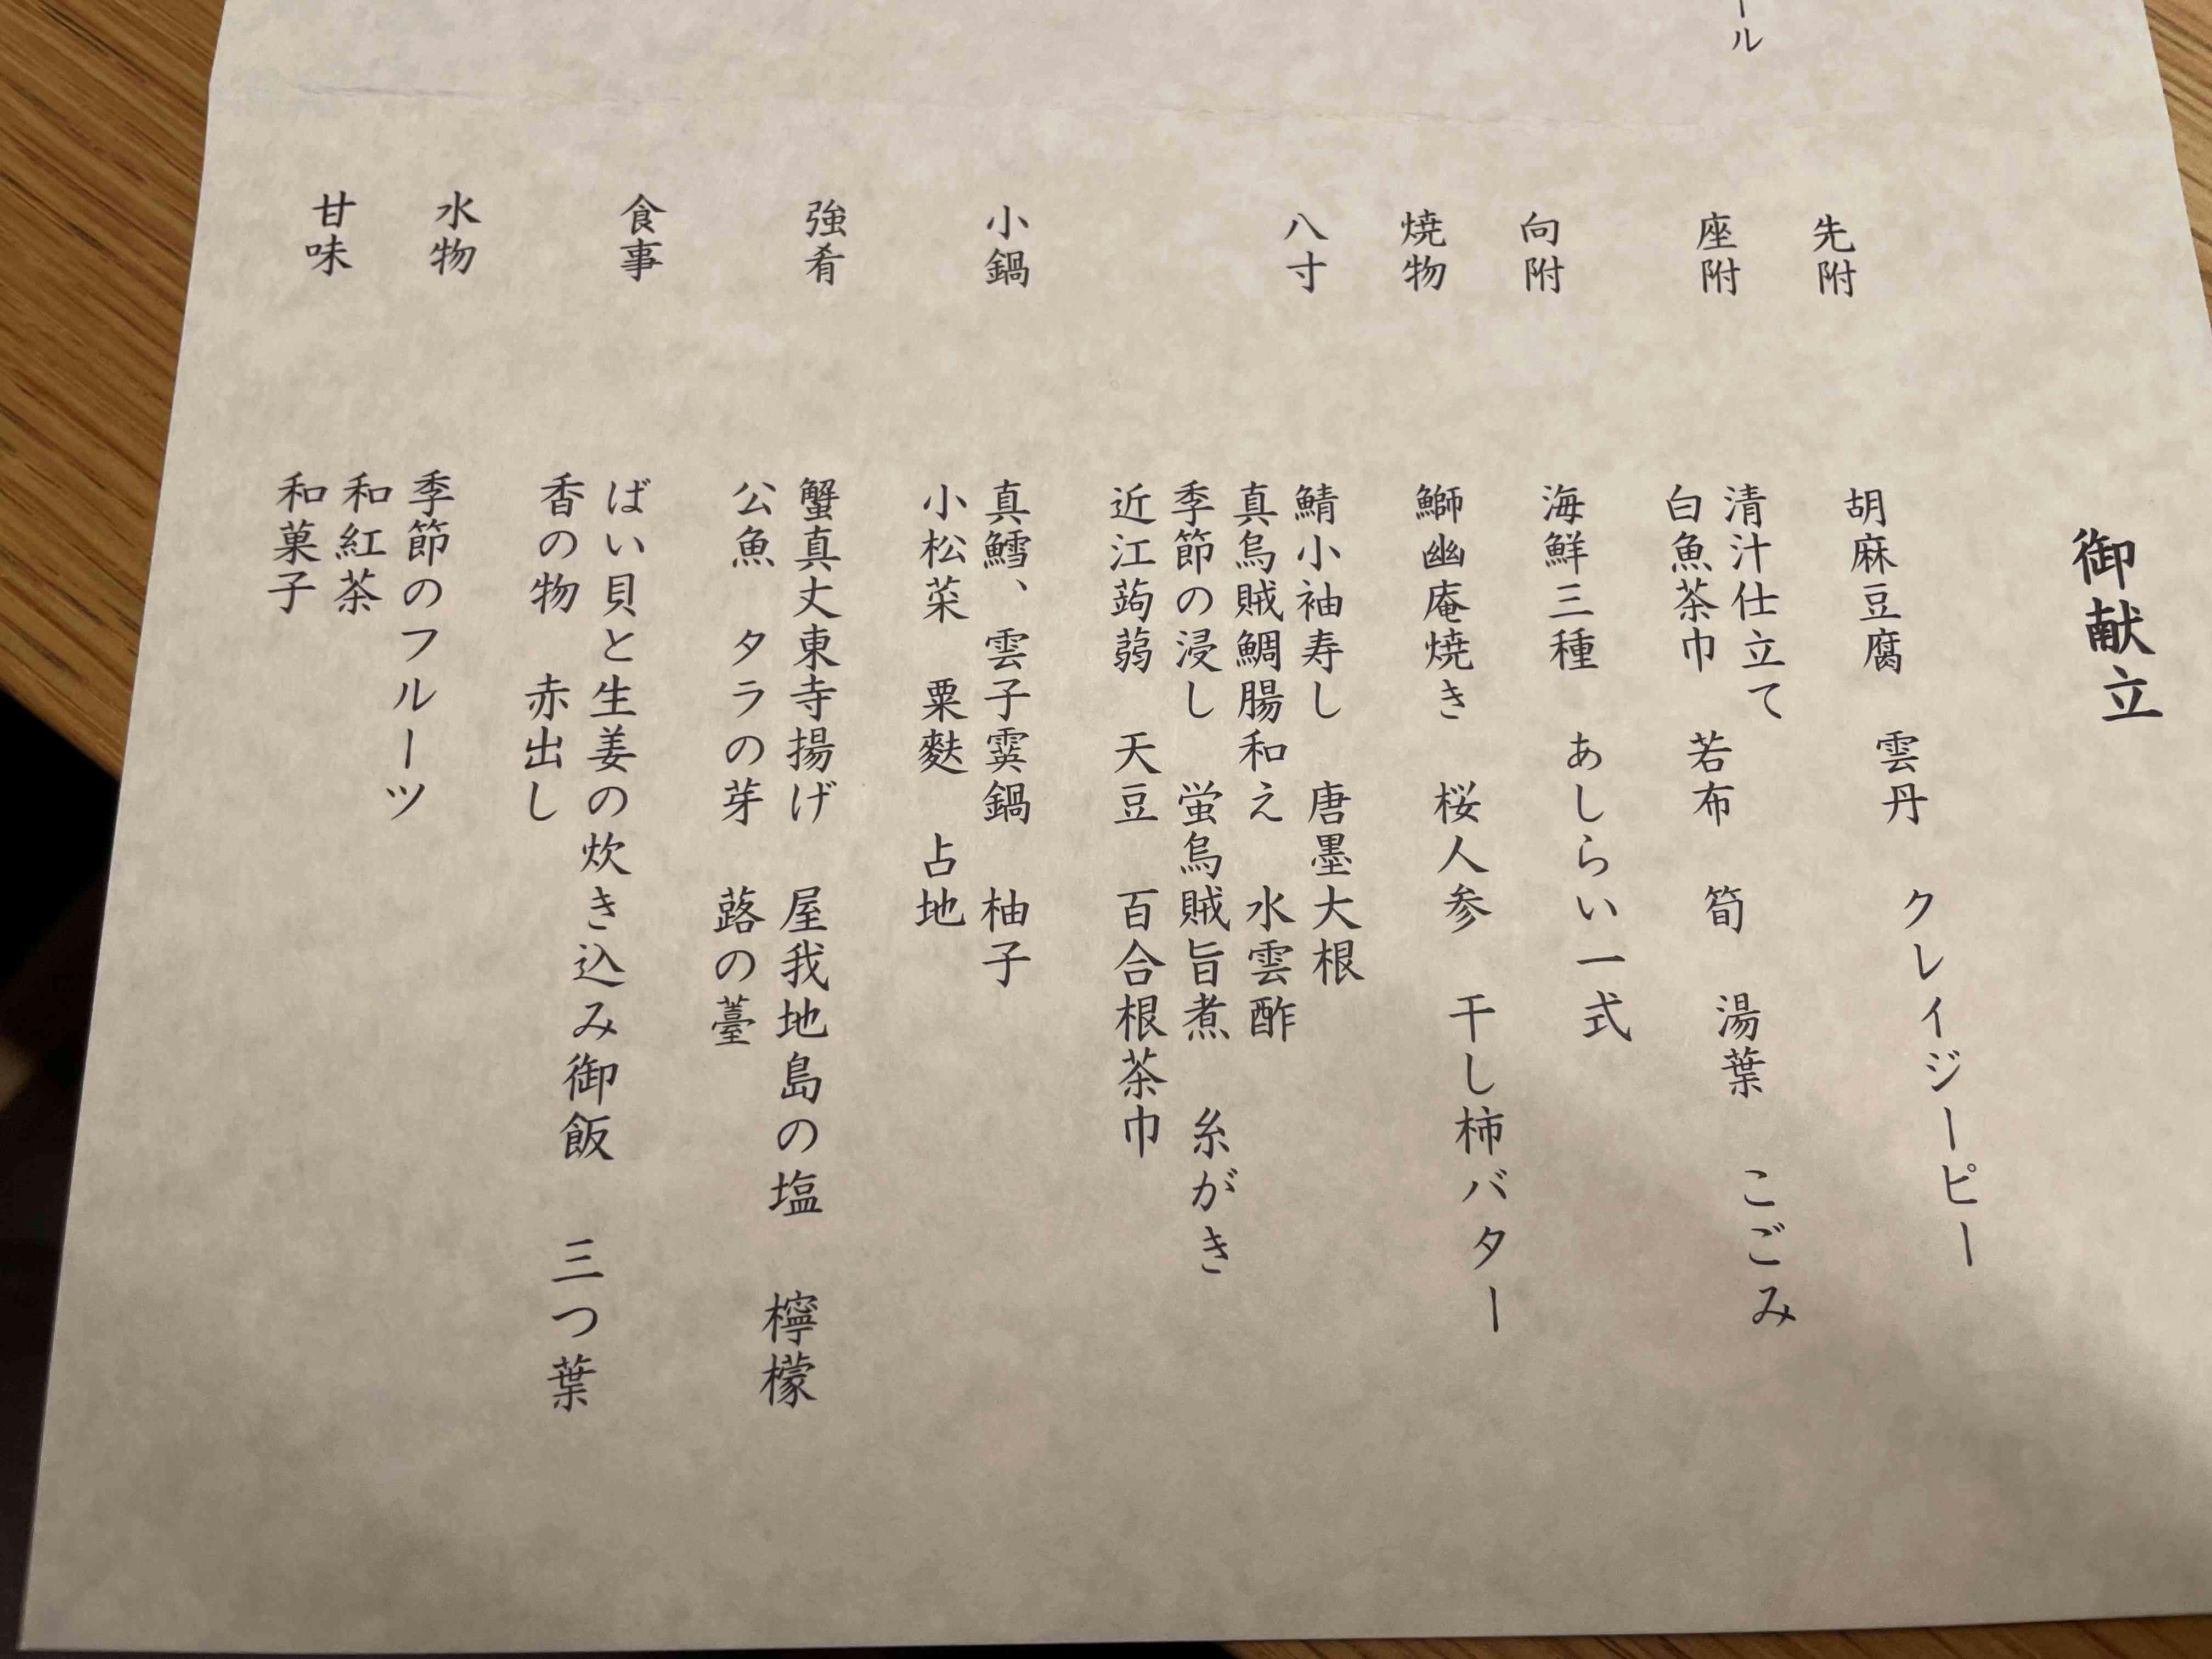 ール
御献立
先附
胡麻豆腐　雲丹　クレイジーピー
座附
清汁仕立て
白魚茶巾　若布　筍　湯葉　こごみ
向附
海鮮三種　あしらい一式
焼物
鰤幽庵焼き　桜人参　干し柿バター
八寸
鯖小袖寿し　唐墨大根
真烏賊鯛腸和え　水雲酢
季節の浸し　蛍烏賊旨煮　糸がき
近江蒟蒻　天豆　百合根茶巾
小鍋
真鱈、雲子霙鍋　柚子
小松菜　粟麩　占地
強肴
蟹真丈東寺揚げ　屋我地島の塩　檸檬
公魚　タラの芽　蕗の薹
食事
ばい貝と生姜の炊き込み御飯　三つ葉
香の物　赤出し
水物
季節のフルーツ
甘味
和紅茶
和菓子